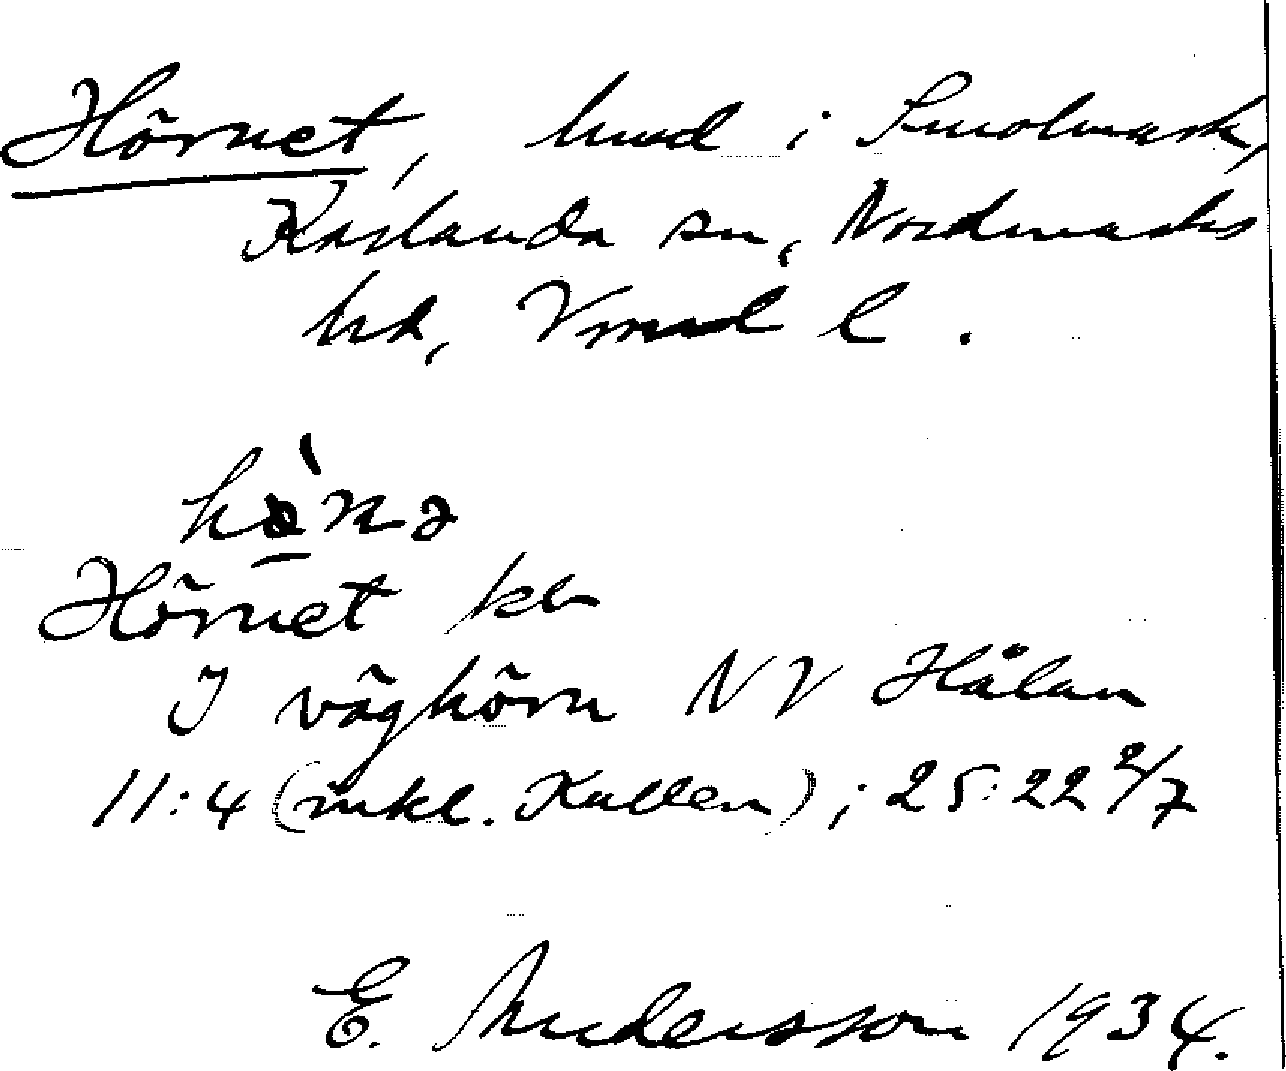 Hörnet, hmd i Smolmark,
Karlanda sn, Nordmarks
hd, Vrml l.
hò̱nə
Hörnet ktr
I väghörn NV Hålan
11:4 (inkl. Kullen); 25:22 2/7
E. Andersson 1934.